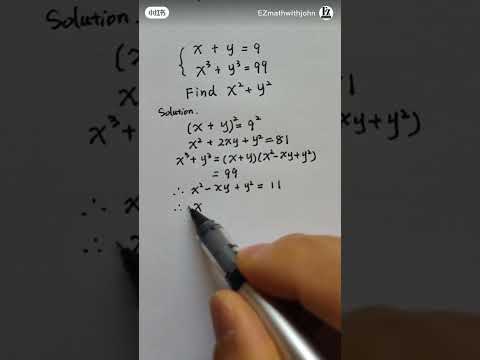 小红书
EZmathwithjohn
EZ
{ x + y = 9
x³ + y³ = 99
Find x² + y²
Solution.
(x + y)² = 9²
x² + 2xy + y² = 81
x³ + y³ = (x + y)(x² - xy + y²)
= 99
∴ x² - xy + y² = 11
∴ x